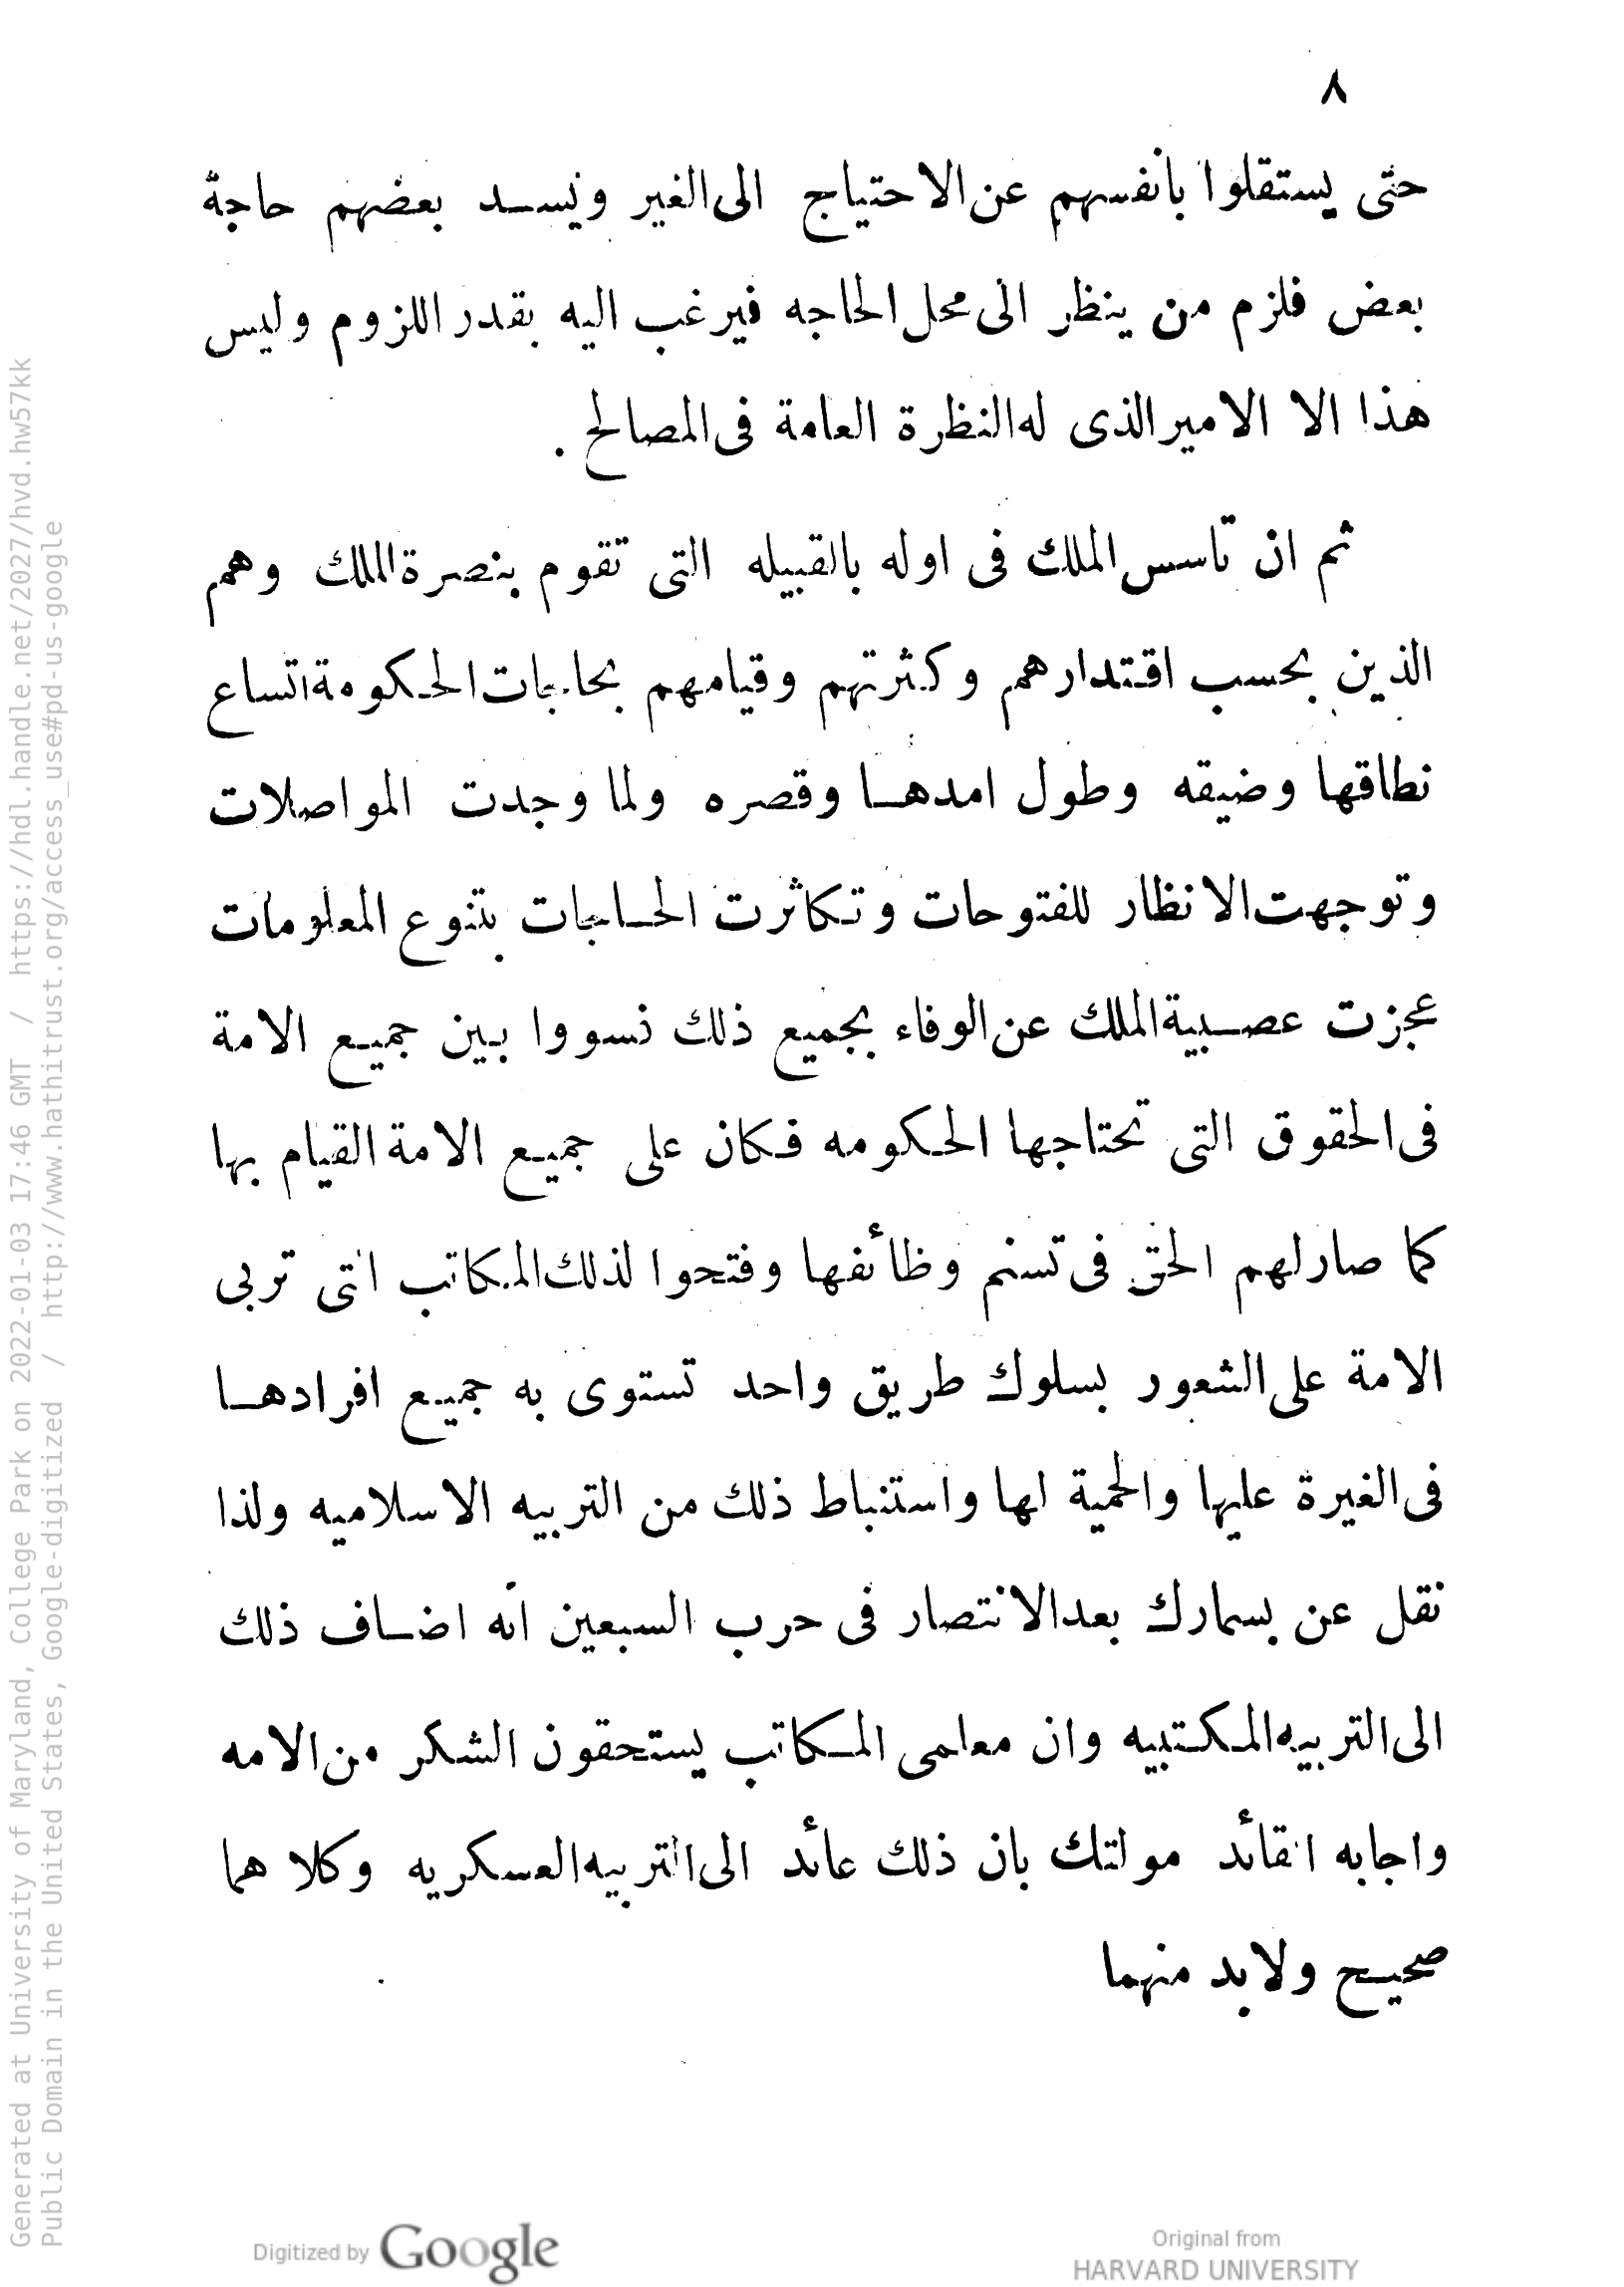 ٨
حتى يستقلوا بأنفسهم عن الاحتياج الى الغير ويسد بعضهم حاجة
بعض فلزم من ينظر الى محل الحاجه فيرغب اليه بقدر اللزوم وليس
هذا الا الامير الذى له النظرة العامة فى المصالح .
ثم ان تاسس الملك فى اوله بالقبيله التى تقوم بنصرة الملك وهم
الذين بحسب اقتدارهم وكثرتهم وقيامهم بحاجات الحكومة اتساع
نطاقها وضيقه وطول امدها وقصره ولما وجدت المواصلات
وتوجهت الانظار للفتوحات وتكاثرت الحاجات بتنوع المعلومات
عجزت عصبية الملك عن الوفاء بجميع ذلك نسووا بين جميع الامة
فى الحقوق التى تحتاجها الحكومه فكان على جميع الامة القيام بها
كما صار لهم الحق فى تسنم وظائفها وفتحوا لذلك المكاتب التى تربى
الامة على الشعور بسلوك طريق واحد تستوى به جميع افرادها
فى الغيرة عليها والحمية لها واستنباط ذلك من التربيه الاسلاميه ولذا
نقل عن بسمارك بعد الانتصار فى حرب السبعين انه اضاف ذلك
الى التربيه المكتبيه وان معلمى المكاتب يستحقون الشكر من الامه
واجابه القائد مولتك بان ذلك عائد الى التربيه العسكريه وكلا هما
صحيح ولابد منهما
Generated at University of Maryland, College Park on 2022-01-03 17:46 GMT / https://hdl.handle.net/2027/hvd.hw57kk
Public Domain in the United States, Google-digitized / http://www.hathitrust.org/access_use#pd-us-google
Digitized by Google
Original from
HARVARD UNIVERSITY